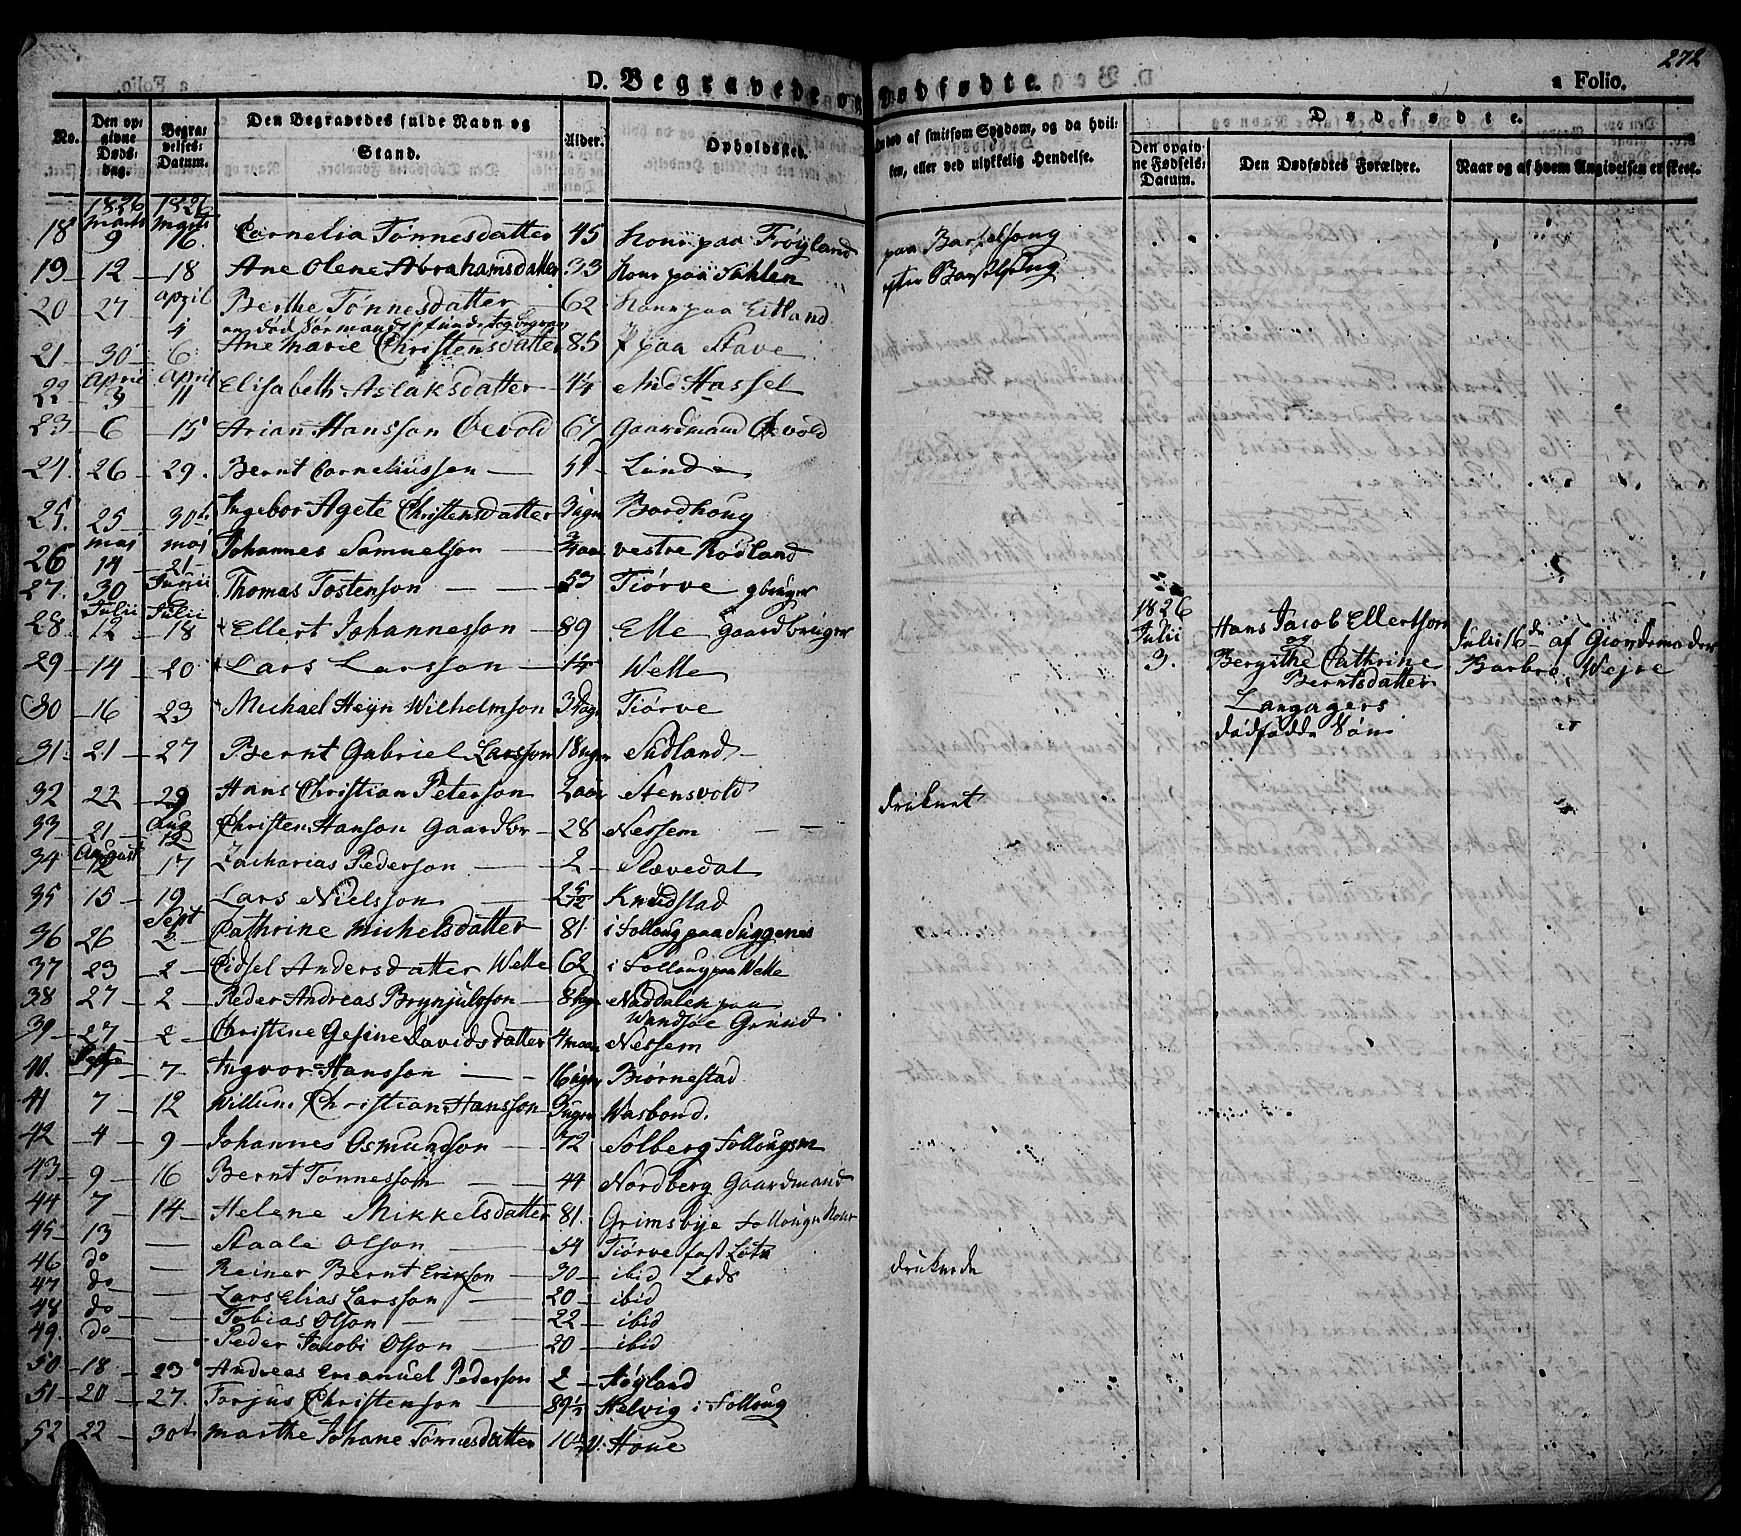 272
D. Begravede og Dødfødte. a Folio.
No. Den opgivne Dødsdag. Begravelses-Datum. Den Begravedes fulde Navn og Stand. Alder. Opholdssted. af smitsom Sygdom, og da hvilken, eller ved ulykkelig Hendelse. Dødfødte.
Den opgivne Fødsels-Datum. Den Dødfødtes Forældre. Naar og af hvem Angivelsen er skeet.
1826 1826
18 Marts 9 Marts 16. Cornelia Tønnesdatter 45 Kone paa Frøyland paa Barselseng
19 — 12 — 18 Ane Olene Abrahamsdatter 33 Kone paa Sahlen efter Barselseng
20 — 27 — April 1 Berthe Tønnesdatter — 62 Kone paa Eitland
4 en død Sørmand funden og begraven
21 — 30 — 6 Ane Marie Christensdatter 85 paa Stave
22 April 3 April 11 Elisabeth Aslaksdatter — Hassel
23 — 6 — 15 Arian Hansson Øevold 67 Gaardmand Øevold
24 — 26 — 29. Bernt Corneliussen — Lunde
25. 25 — 30te Ingebor Agete Christensdatter 3 uger Bordhoug
26 Maj 14 Maj 21 Johannes Samuelson — 3/4 aar vestre Rødland
27. 30 Junii 6 Thomas Tostenson — 53 Tiørve gbruger
28 Julii 12 Julii 18 Ellert Johannesson — 89 Elle Gaardbruger
29 — 14 — 20 Lars Larsson — 14 Welle
30 — 16 — 23 Michael Heyn Wilhelmson 3 Dage Tiørve
1826 Julii 3. Hans Jacob Ellertson og Julii 16de af Giordemoder
Bergithe Cathrine Barbro Wejre
Berntsdatter
Langagers
dødfødde Søn
31. 21 — 27 Bernt Gabriel Larsson 18 uger Sædland
32 22 — 29 Hans Christian Peterson 2 aar Stensvold
33 — 21 — Aug 12 Christen Hanson Gaardbr — 28 Nessem — — druknet
34 August 12 — 17 Zacharias Pederson — 2 — Slævedal
35 15 — 19 Lars Nielsson — 2 5/12 Knudstad
36 26 Sept 2 Cathrine Michelsdatter 81 i Folloug paa Suggenes
37 23 — 2 — Sidsel Andersdatter Welle 62 i Folloug paa Welle
38 27 — 2 Peder Andreas Brynjulsson — 8 Naddalen paa
Wandsøe Grund
39 — 27 — 2 — Christine Gesine Davidsdatter 4 Nessem
40. Septr 1 — 7 — Ingvor Hansson — 16 uger Biørnestad
41 7 — 12 Willum Christian Hansson 3 uger Wasbond.
42 — 4 — 9 — Johannes Osmundson — 72 Solberg Follougsm
43 — 9 — 16 Bernt Tønnesson — 44 Nordberg Gaardmand
44 7 — 14 — Helene Mikkelsdatter 81. Grimsbye Follougs Kone
45 — 13 — Staale Olson — 54 Tiørve fast Lots
46 do — Reiner Bernt Erikson — 30 — ibid Lods druknede
47 do — Lars Elias Larsson — 20 — ibid
48 do — Tobias Olson — 22 — ibid
49. do — Peder Jacobi Olson — 20 — ibid
50 — 18 — 23 Andreas Emanuel Pederson 2 — Støyland
51 — 20 — 27. Torjus Christenson — 89 1/2 Helvig i Folloug
52 22 — 30te Marthe Johane Tønnesdatter Houe